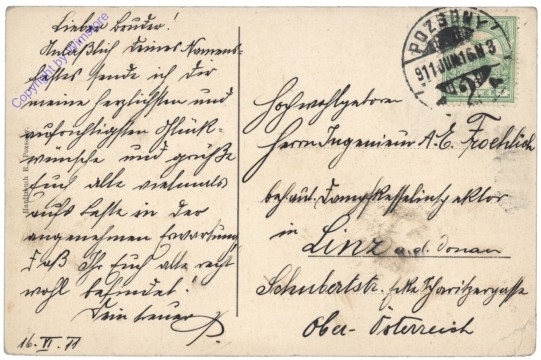 Lieber Bruder!
Anläßlich Deines Namens-
festes sende ich Dir
meine herzlichsten und
aufrichtigsten Glück-
wünsche und grüße
Euch alle vielmals
aufs beste in der
angenehmen Erwartung
daß Ihr Euch alle recht
wohl befindet!
Dein treuer
16. VI. 11
Copyright by
POZSONY
911 JUN. 16
Hochwohlgeboren
Herrn Ingenieur A. E. Froehlich
behaut. Dampfkesselinspektor
in
Linz a. d. Donau
Schubertstr. Ecke Scharitzergasse
Ober-Österreich